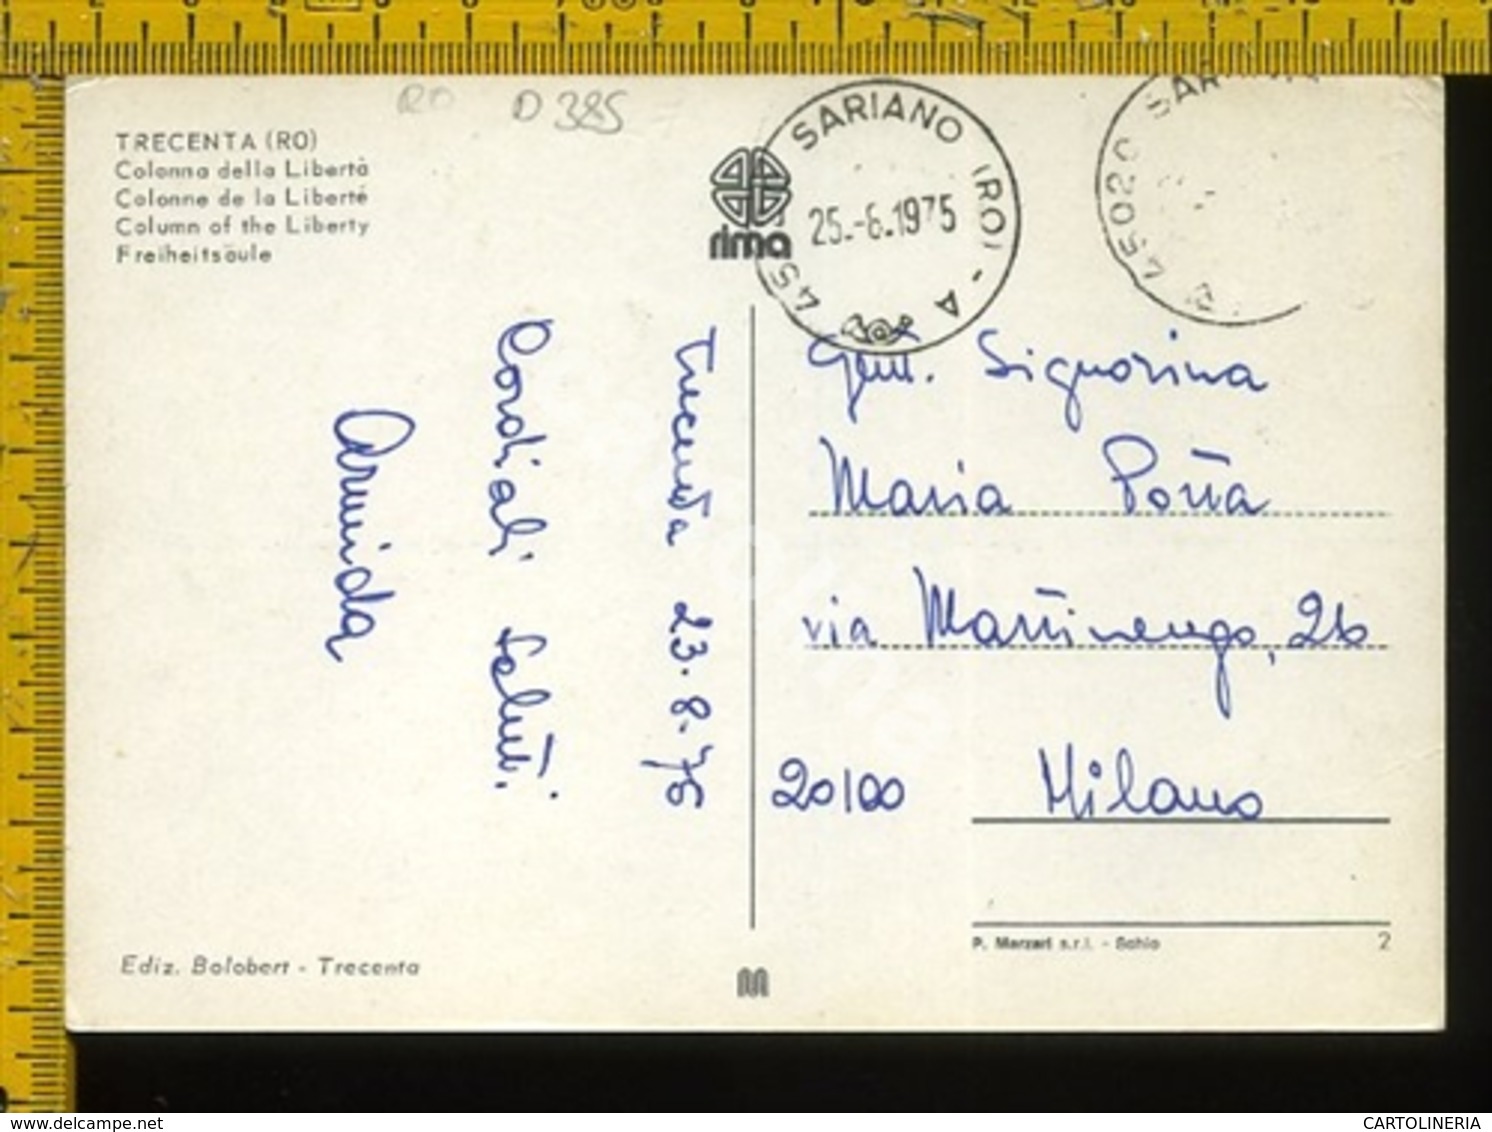 RO D 385
TRECENTA (RO)
Colonna della Libertà
Colonne de la Liberté
Column of the Liberty
Freiheitsäule
rima
SARIANO (RO) - A
25.-8.1975
45020 SARIANO
Trecenta 23.8.75
Cordiali saluti.
Arminda
Gent. Signorina
Maria Porta
via Martinengo, 26
20100 Milano
Ediz. Bolobert - Trecenta
P. Marzari s.r.l. - Schio
2
www.delcampe.net
CARTOLINERIA